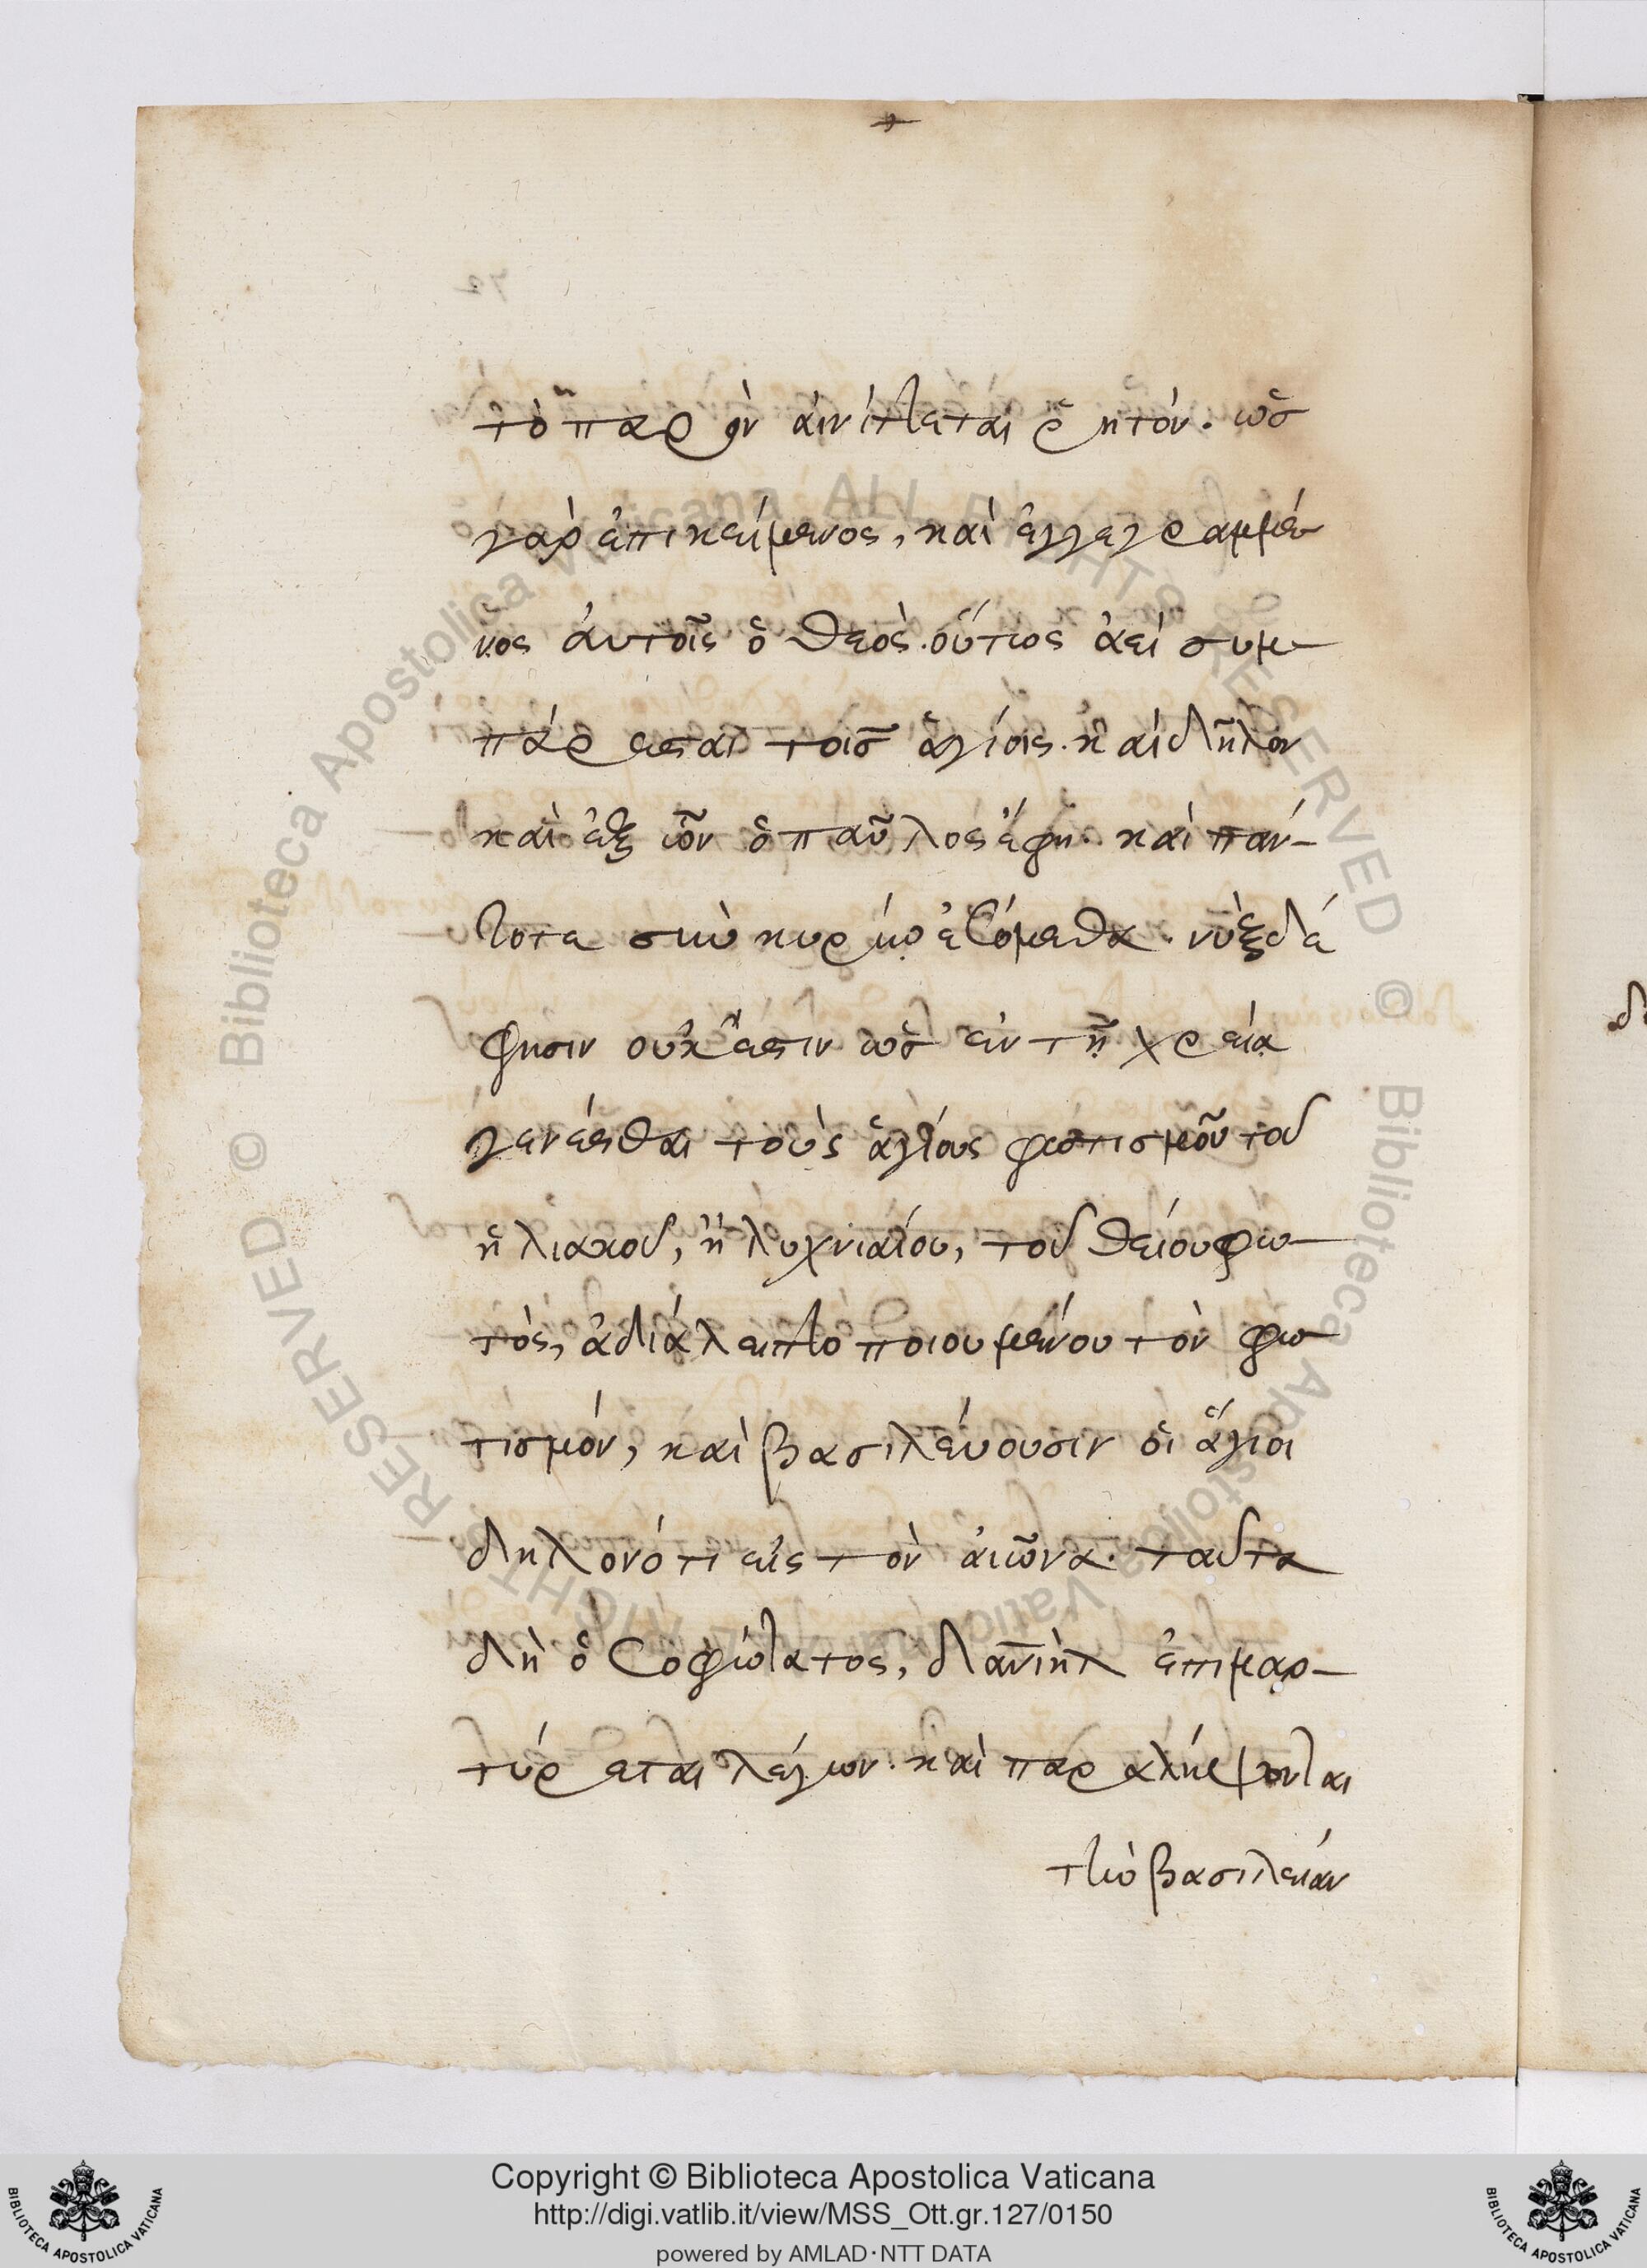 τὸ παρὸν αἰνίττεται ῥητόν. ὡς
γὰρ ἐπικείμενος, καὶ ἐγγεγραμμέ
νος ἀυτοῖς ὁ θεὸς. οὕτως ἀεὶ συμ-
πάρεσται τοῖς ἁγίοις. καὶ δῆλον
καὶ ἐξ ὧν ὁ παῦλος ἔφη. καὶ πάν-
τοτε σὺν κυρίῳ ἐσόμεθα. νὺξ δέ
φησιν οὐκ ἔστιν ὡς ἐν τῇ χρεία
γενέσθαι τοὺς ἁγίους φωτισμοῦ τοῦ
ἡλιακοῦ, ἢ λυχνιαίου, τοῦ θείου φω-
τὸς, ἀδιάλειπτο ποιουμένου τὸν φω
τισμόν, καὶ βασιλεύουσιν ὁι ἅγιοι
δηλονότι εἰς τὸν ἀιῶνα. ταῦτα
δὴ ὁ σοφώτατος, δανιὴλ ἐπιμαρ-
τύρεται λέγων. καὶ παραλήψονται
τὴν βασιλείαν
Copyright © Biblioteca Apostolica Vaticana
http://digi.vatlib.it/view/MSS_Ott.gr.127/0150
powered by AMLAD·NTT DATA
BIBLIOTECA APOSTOLICA VATICANA
BIBLIOTECA APOSTOLICA VATICANA